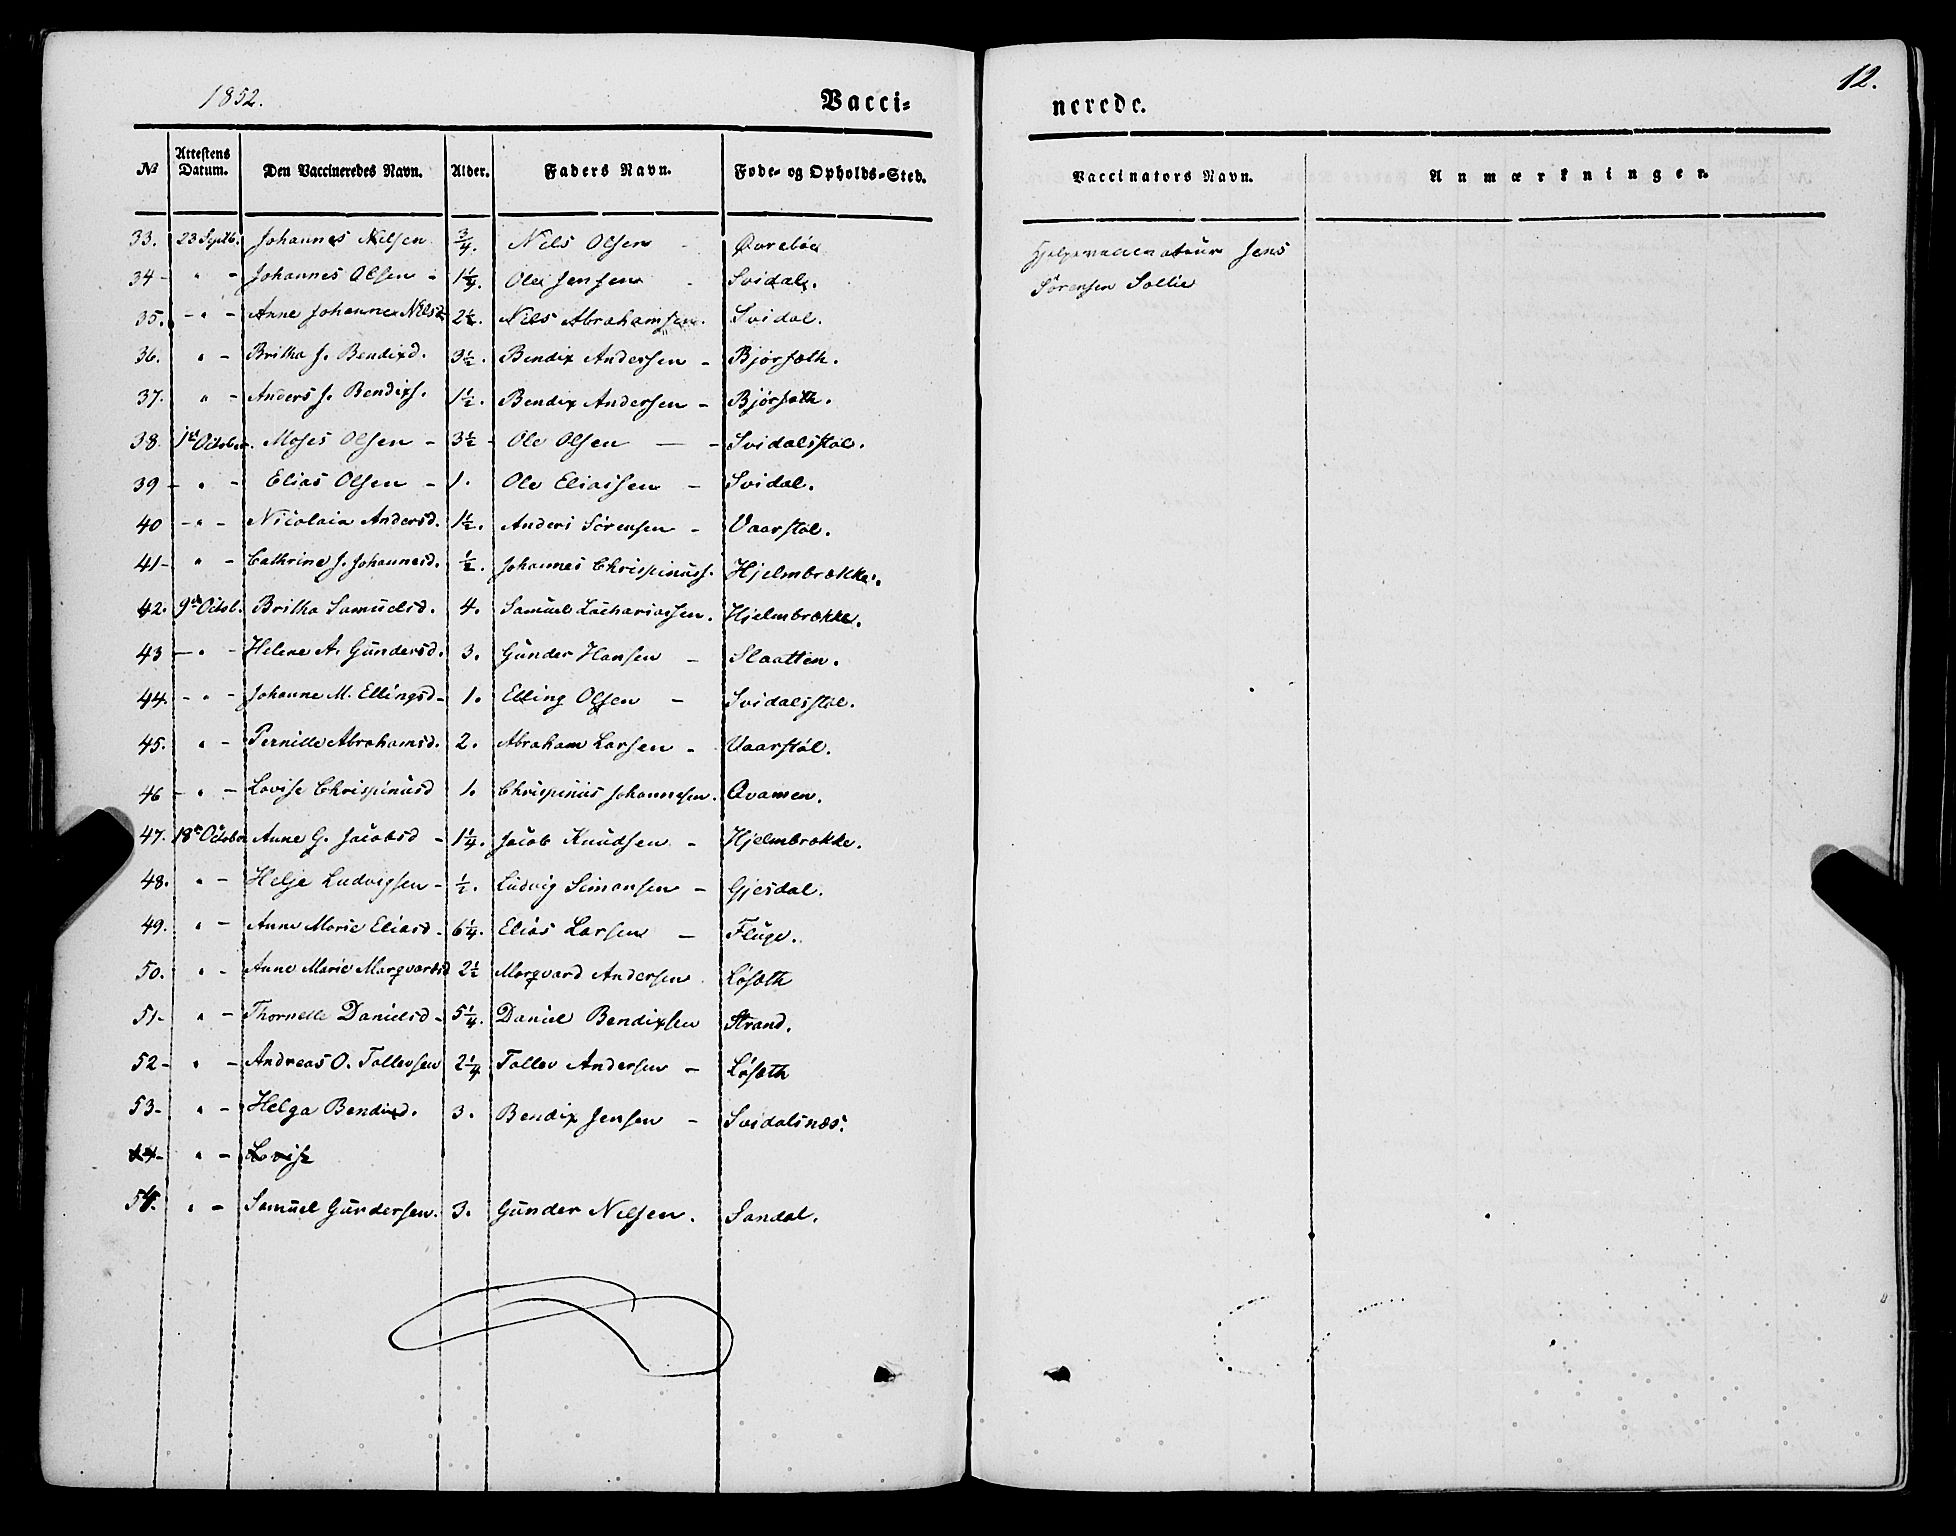 1852.
Vacci-
nerede.
12.
№ Attestens Datum. Den Vaccineredes Navn. Alder. Faders Navn. Føde- og Opholds-Sted. Vaccinators Navn. Anmærkninger.
33. 23 Septb. Johannes Nilsen 3/4. Nils Olsen - Øvrebøe Hjelpevaccinateur Jens
34 - " - Johannes Olsen - 1 1/4. Ole Jensen - Svidal. Sørensen Sollie
35. - " - Anne Johanne Nilsd 2 1/2. Nils Abrahamsen. Svidal.
36. " - Britha J. Bendixd. 3 1/2. Bendix Andersen - Bjørsæth.
37. " - Anders J. Bendixs. 1 1/2. Bendix Andersen - Bjørsæth.
38. 1st October. Moses Olsen - 3 1/2 - Ole Olsen - - Svidalsstøl.
39 - " - Elias Olsen - 1. Ole Eliassen - Svidal.
40 - " - Nicolaia Andersd. 1 1/2. Anders Sørensen - Vaarstøl.
41 - " - Cathrine J. Johannesd. 1/2. Johannes Chrispinuss. Hjelmbrække.
42. 9de Octob. Britha Samuelsd. 4. Samuel Zachariassen. Hjelmbrække.
43 - " - Helene A. Gundersd. 3. Gunder Hansen - Slaatten.
44. - " - Johanne M. Ellingsd - 1. Elling Olsen - Svidalsstøl.
45. " - Pernille Abrahamsd. 2. Abraham Larsen - Vaarstøl.
46 - " - Lovise Chrispinusd 1. Chrispinus Johannesen. Qvamen.
47. 18de October Anne G. Jacobsd - 1 1/4. Jacob Knudsen - Hjelmbrække.
48. " - Helje Ludvigsen - 1/2. Ludvig Simonsen - Gjesdal.
49. " - Anne Marie Eliasd - 6 1/4. Elias Larsen - Fluge.
50. " - Anne Marie Marqvardsd 2 1/2 Marqvard Andersen Løsæth
51 - " - Thornelle Danielsd - 5 1/4. Daniel Bendixsen Strand.
52 - " - Andreas O. Tollevsen 2 1/4 Tollev Andersen - Løsæth
53 - " - Helga Bendixd. 3. Bendix Jensen - Svidalsnæs.
54 - " - Lovise
54. " - Samuel Gundersen. 3. Gunder Nilsen. Sandal.